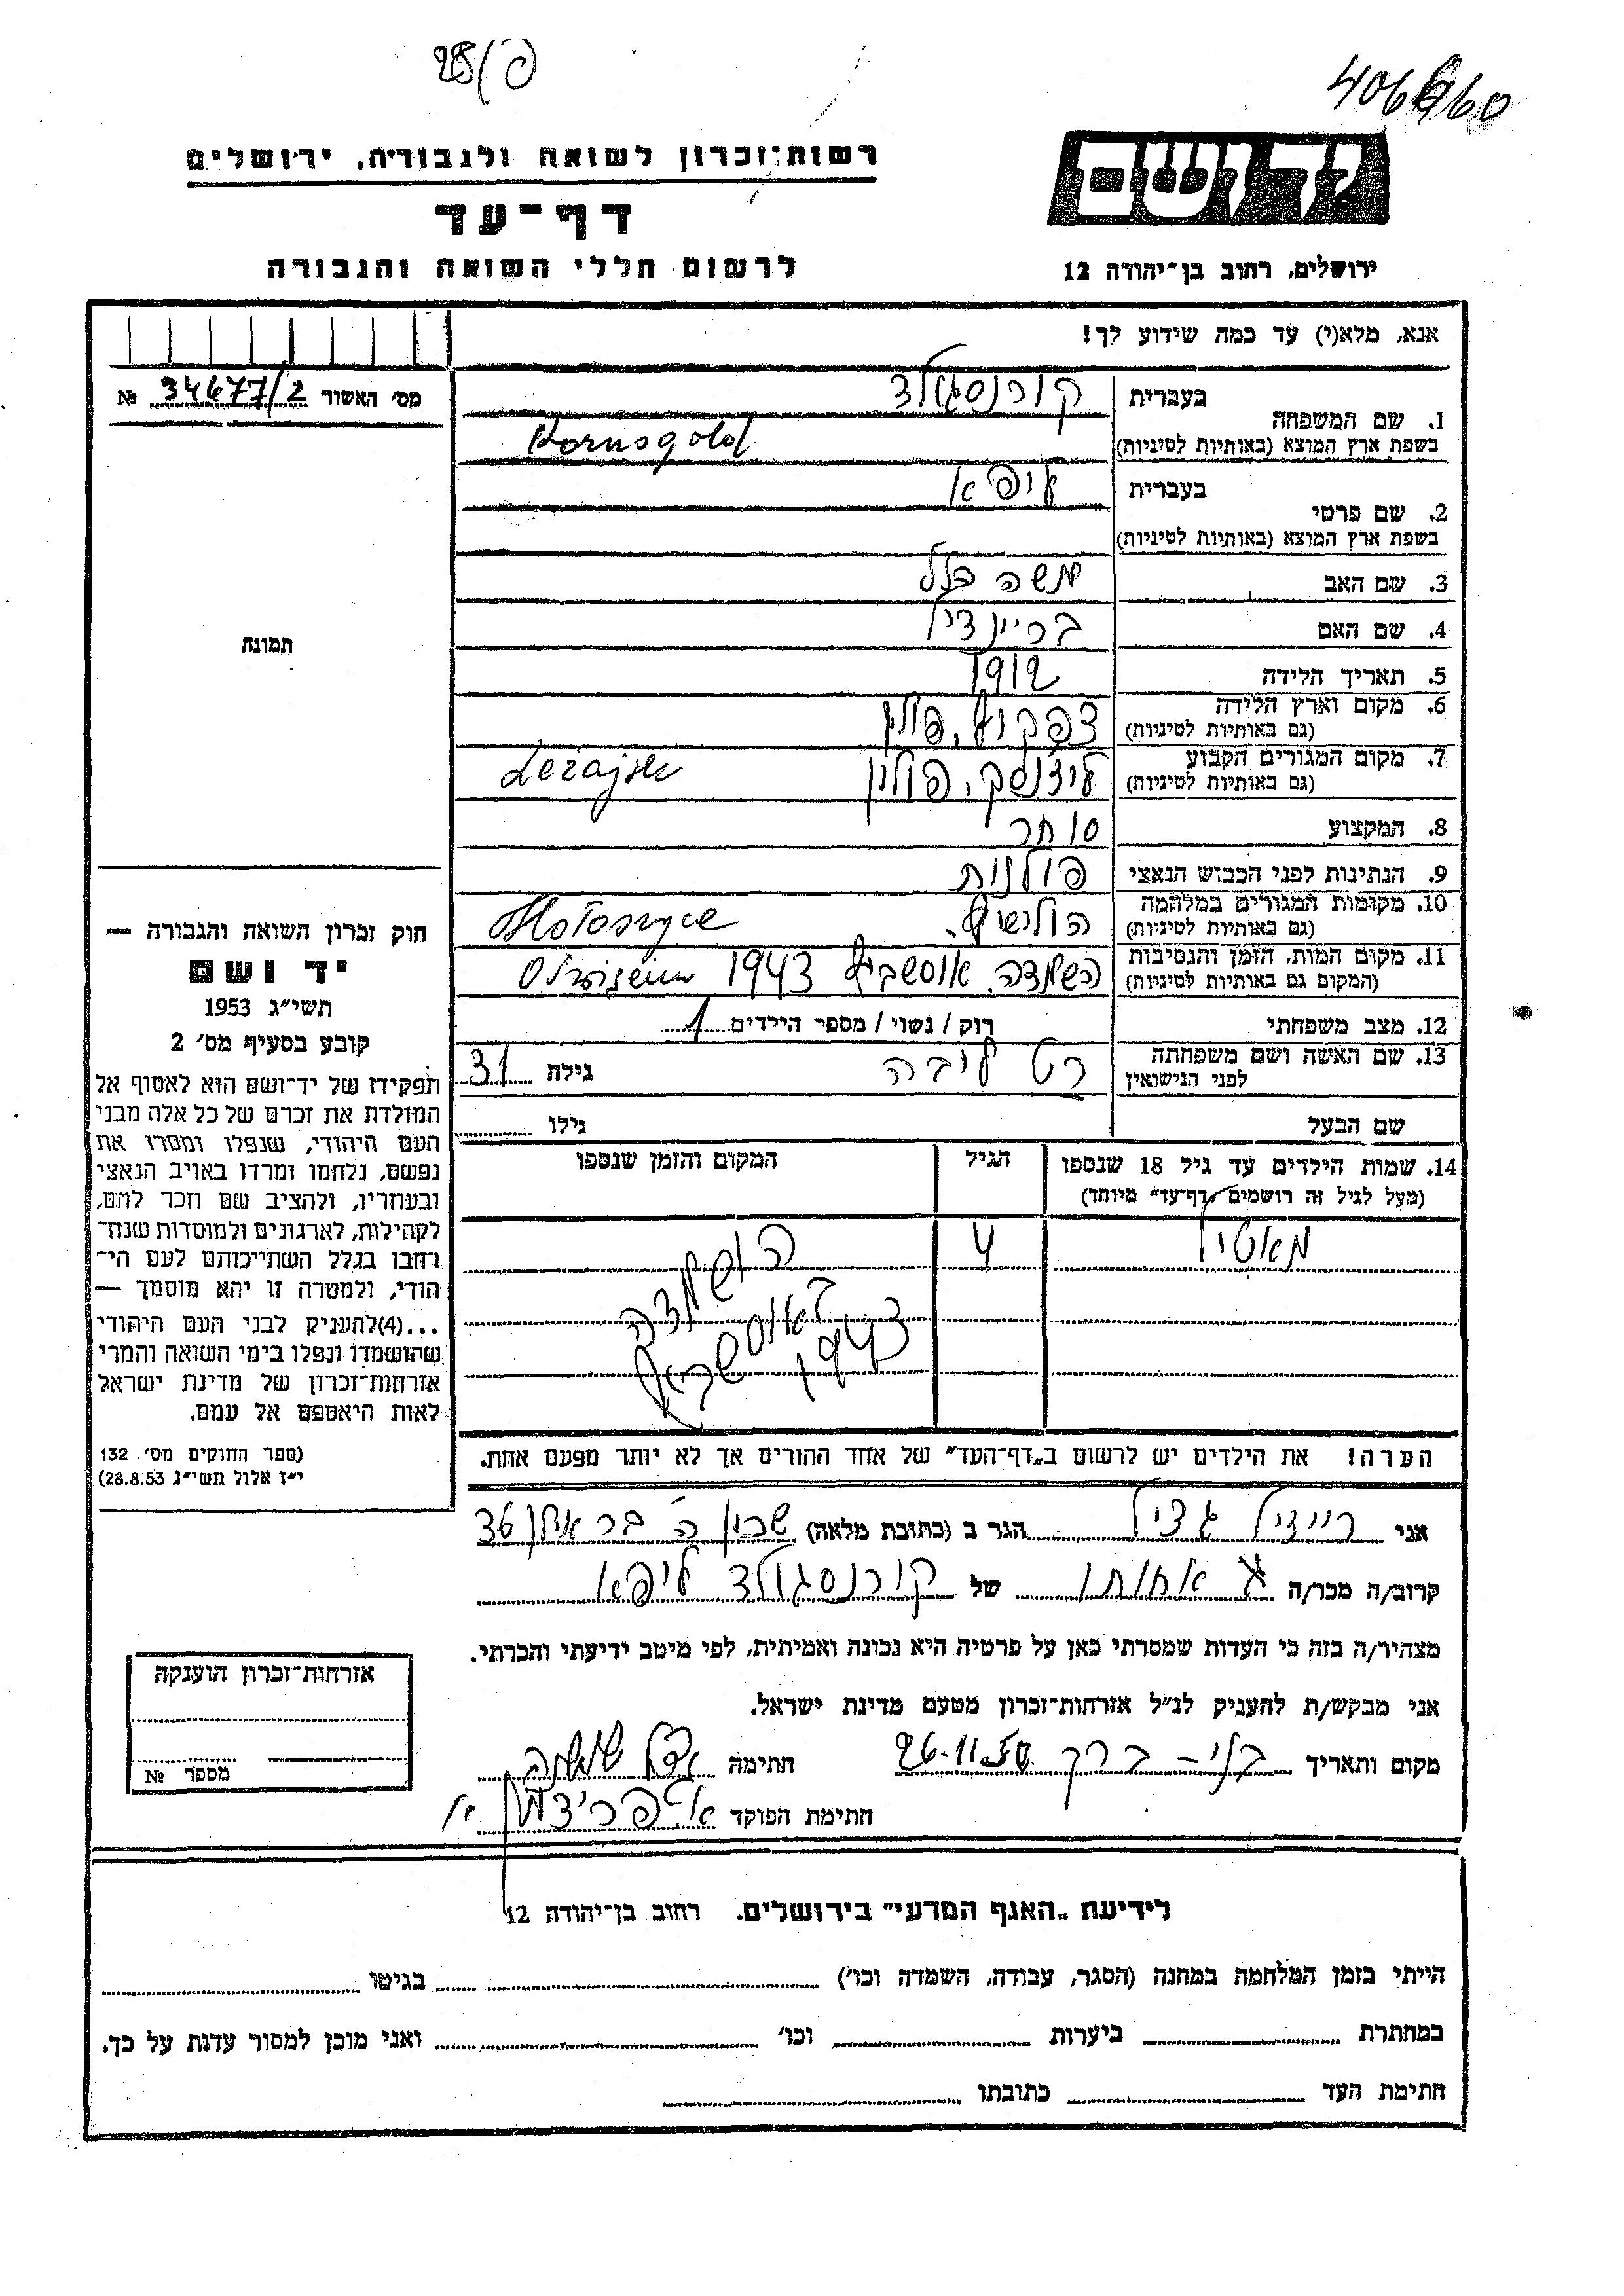 28/ס
406660
רשות־זכרון לשואה ולגבורה, ירושלים
דף־עד
לרשום חללי השואה והגבורה
יד ושם
ירושלים, רחוב בן־יהודה 12
אנא, מלא(י) עד כמה שידוע לך!
מס׳ האשור 34677/2 №
1. שם המשפחה
בעברית קורנסגולד
בשפת ארץ המוצא (באותיות לטיניות) Kornsgold
2. שם פרטי
בעברית ליפא
בשפת ארץ המוצא (באותיות לטיניות)
3. שם האב משה
4. שם האם בריינדיל
5. תאריך הלידה 1912
6. מקום וארץ הלידה
(גם באותיות לטיניות) פולין
7. מקום המגורים הקבוע
(גם באותיות לטיניות) ליזנסק, פולין Leżajsk
8. המקצוע סוחר
9. הנתינות לפני הכבוש הנאצי פולנית
10. מקומות המגורים במלחמה
(גם באותיות לטיניות)
11. מקום המות, הזמן והנסיבות
(המקום גם באותיות לטיניות) השמדה, אושביץ 1943
12. מצב משפחתי רוק / נשוי / מספר הילדים 1
13. שם האשה ושם משפחתה
לפני הנישואין רט ליבה גילה 31
שם הבעל גילו
14. שמות הילדים עד גיל 18 שנספו
(מעל לגיל זה רושמים „דף־עד״ מיוחד)
הגיל
המקום והזמן שנספו
מאטיל 4 הושמדה
באושביץ
1943
הערה! את הילדים יש לרשום ב„דף־העד״ של אחד ההורים אך לא יותר מפעם אחת.
תמונה
חוק זכרון השואה והגבורה —
יד ושם
תשי״ג 1953
קובע בסעיף מס׳ 2
תפקידו של יד־ושם הוא לאסוף אל
המולדת את זכרם של כל אלה מבני
העם היהודי, שנפלו ומסרו את
נפשם, נלחמו ומרדו באויב הנאצי
ובעוזריו, ולהציב שם וזכר להם,
לקהילות, לארגונים ולמוסדות שנח־
רבו בגלל השתייכותם לעם הי־
הודי, ולמטרה זו יהא מוסמך —
...(4)להעניק לבני העם היהודי
שהושמדו ונפלו בימי השואה והמרי
אזרחות־זכרון של מדינת ישראל
לאות היאספם אל עמם.
(ספר החוקים מס׳ 132
י״ז אלול תשי״ג 28.8.53)
אני רייזיל הגר ב (כתובת מלאה) שכון ה׳ בר אילן 36
קרוב/ה מכר/ה אחותו של קורנסגולד ליפא
מצהיר/ה בזה כי העדות שמסרתי כאן על פרטיה היא נכונה ואמיתית, לפי מיטב ידיעתי והכרתי.
אני מבקש/ת להעניק לנ״ל אזרחות־זכרון מטעם מדינת ישראל.
מקום ותאריך בני־ברק 26.11.56 חתימה
חתימת הפוקד
אזרחות־זכרון הוענקה
מספר №
לידיעת „האגף המדעי״ בירושלים. רחוב בן־יהודה 12
הייתי בזמן המלחמה במחנה (הסגר, עבודה, השמדה וכו׳) בגיטו
במחתרת ביערות וכו׳ ואני מוכן למסור עדות על כך.
חתימת העד כתובתו